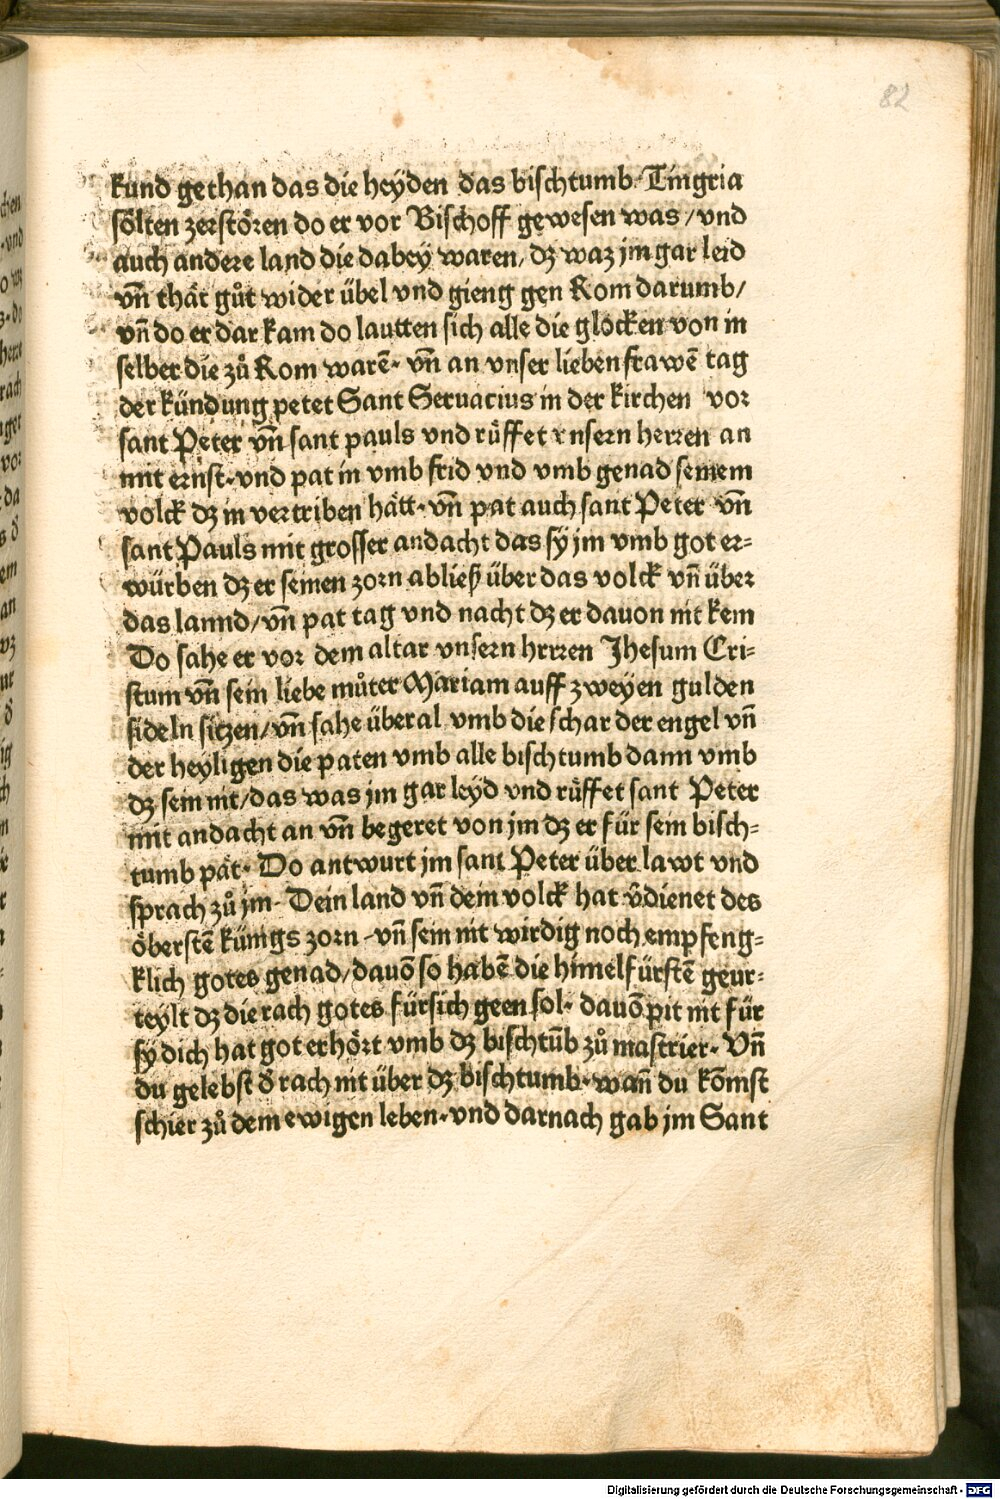 82
kund gethan das die heyden das bischtumb Tingria
sölten zerstören do er vor Bischoff gewesen was / vnd
auch andere land die dabey waren, dz waz jm gar leid
vn̄ thät gůt wider übel vnd gieng gen Rom darumb/
vn̄ do er dar kam do lautten sich alle die glocken von in
selber die zů Rom warē. vn̄ an vnser lieben frawē tag
der kündung petet Sant Seruacius in der kirchen vor
sant Peter vn̄ sant pauls vnd rüffet vnsern herren an
mit ernst. vnd pat in vmb frid vnd vmb genad seinem
volck dz in vertriben hätt. vn̄ pat auch sant Peter vn̄
sant Pauls mit grosser andacht das sy jm vmb got er=
würben dz er seinen zorn abließ über das volck vn̄ über
das lannd/vn̄ pat tag vnd nacht dz er dauon nit kem
Do sahe er vor dem altar vnsern hrrren Jhesum Cri=
stum vn̄ sein liebe můter Mariam auff zweyen gulden
sideln sitzen/vn̄ sahe überal vmb die schar der engel vn̄
der heyligen die paten vmb alle bischtumb dann vmb
dz sein nit/das was jm gar leyd vnd rüffet sant Peter
mit andacht an vn̄ begeret von jm dz er für sein bisch=
tumb pät. Do antwurt jm sant Peter über lawt vnd
sprach zů jm. Dein land vn̄ dein volck hat v̄dienet des
öberstē künigs zorn. vn̄ sein nit wirdig noch empfeng=
klich gotes genad/dauō so habē die himelfürstē geur=
teylt dz die rach gotes fürsich geen sol. dauō pit nit für
sy dich hat got erhört vmb dz bischtūb zů mastrier. Vn̄
du gelebst d̄ rach nit über dz bischtumb. wan̄ du kōmst
schier zů dem ewigen leben. vnd darnach gab jm Sant
Digitalisierung gefördert durch die Deutsche Forschungsgemeinschaft - DFG